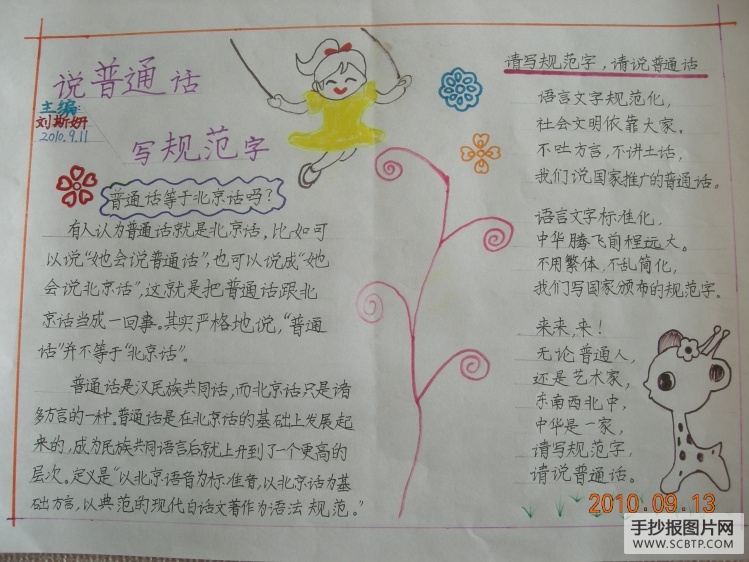 说普通话
主编:
刘斯妍
2010.9.11
写规范字
普通话等于北京话吗?
有人认为普通话就是北京话,比如可
以说“她会说普通话”,也可以说成“她
会说北京话”,这就是把普通话跟北
京话当成一回事。其实严格地说,“普通
话”并不等于“北京话”。
普通话是汉民族共同话,而北京话只是诸
多方言的一种。普通话是在北京话的基础上发展起
来的,成为民族共同语言后就上升到了一个更高的
层次。定义是“以北京语音为标准音,以北京话为基
础方言,以典范的现代白话文著作为语法规范。”
请写规范字,请说普通话
语言文字规范化,
社会文明依靠大家。
不吐方言,不讲土话,
我们说国家推广的普通话。
语言文字标准化,
中华腾飞前程远大。
不用繁体,不乱简化,
我们写国家颁布的规范字。
来,来,来!
无论普通人,
还是艺术家,
东南西北中,
中华是一家,
请写规范字,
请说普通话。
2010.09.13
手抄报图片网
WWW.SCBTP.COM